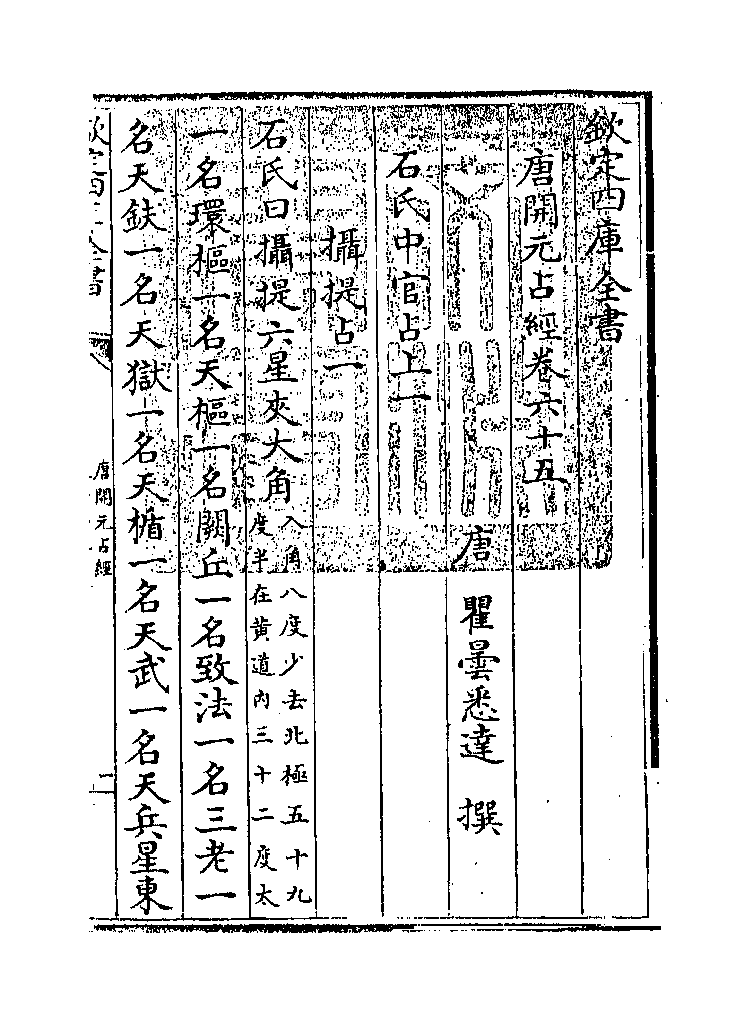 欽定四庫全書
唐開元占經卷六十五
唐 瞿曇悉達 撰
石氏中官占上一
攝提占一
石氏曰攝提六星夾大角入角八度少去北極五十九度半在黄道内三十二度太
一名環樞一名天樞一名闕丘一名致法一名三老一
名天鈇一名天獄一名天楯一名天武一名天兵星東
欽定四庫全書
唐開元占經